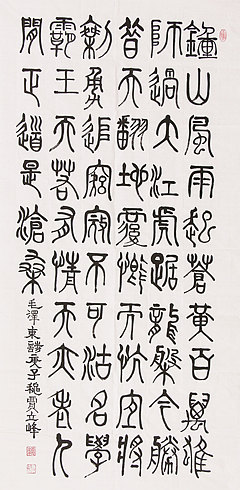 鍾山風雨起蒼黃百萬雄
師過大江虎踞龍槃今勝
昔天翻地覆慨而慷宜將
剩勇追窮寇不可沽名學
霸王天若有情天亦老人
間正道是滄桑
毛澤東詩庚子穐賈立峰